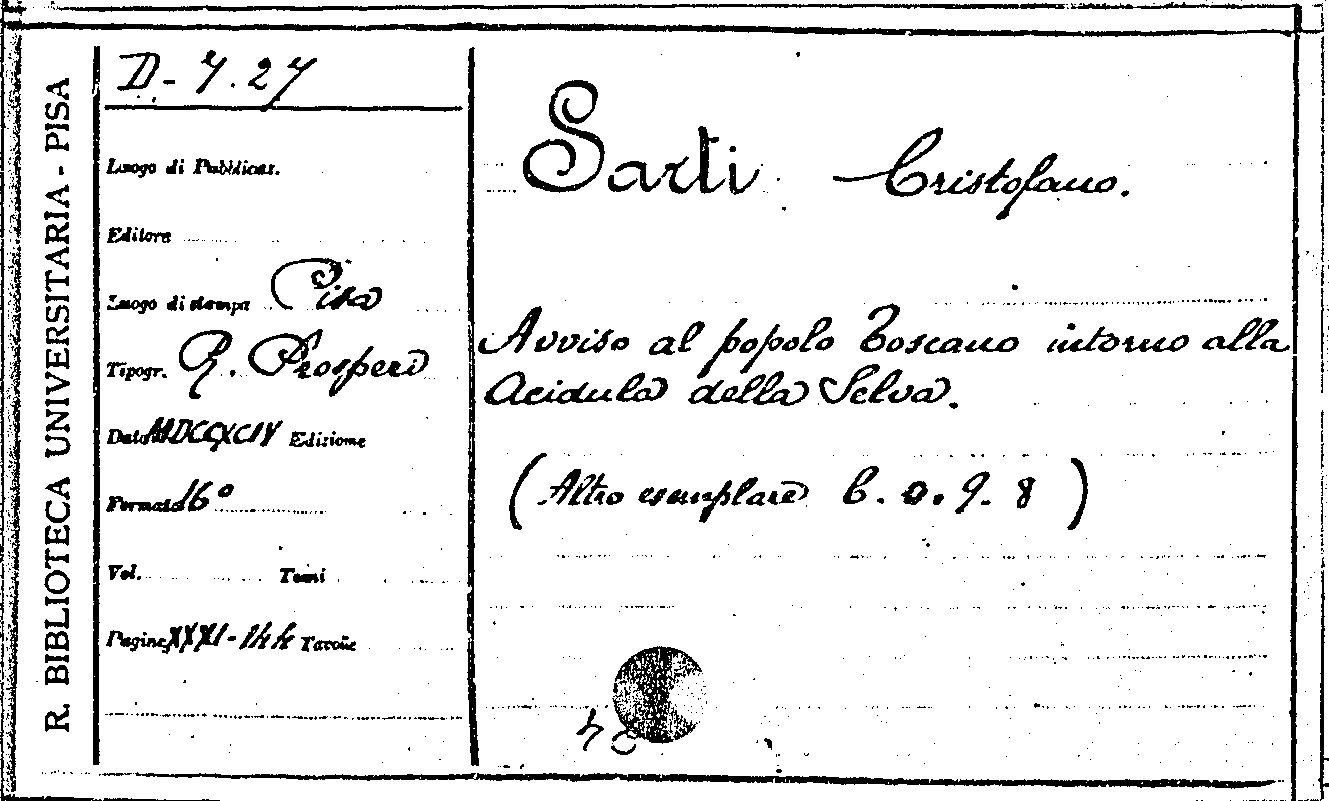 R. BIBLIOTECA UNIVERSITARIA - PISA
D-7.27
Luogo di Pubblicaz.
Editore
Luogo di stampa Pisa
Tipogr. R. Prosperi
Data MDCCXCIV Edizione
Formato 16°
Vol. Tomi
Pagine XXXI-144 Tavole
Sarti Cristofano.
Avviso al popolo Toscano intorno alla
Acidula della Selva.
(Altro esemplare C. a. 9. 8)